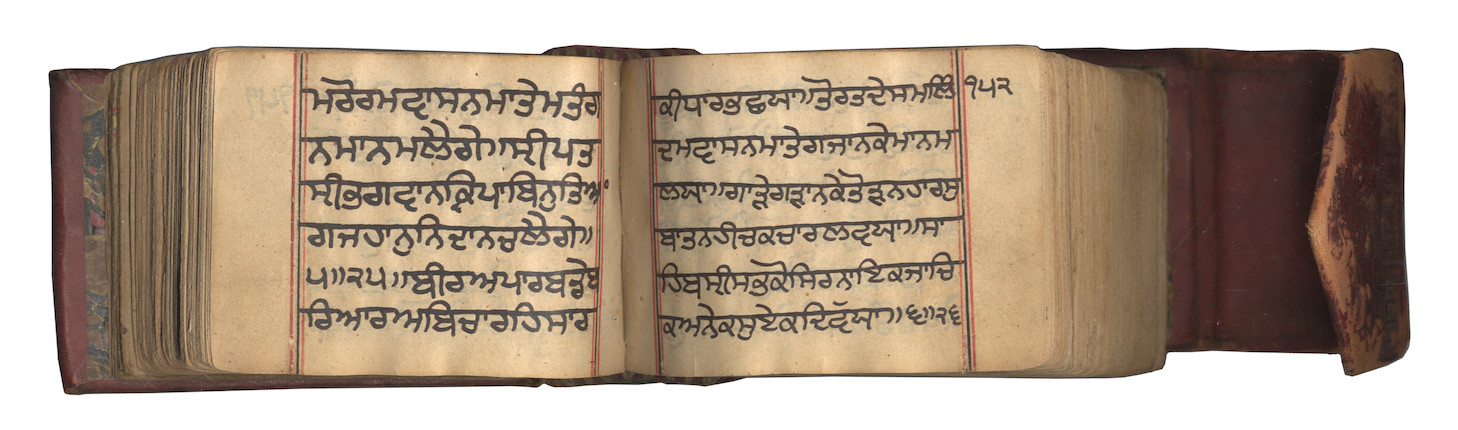 ਮਰੋਰਮਵਾਸਨਮਾਤੇਮਤੰਗ
ਨਮਾਨਮਲੈਗੇ॥ਸ੍ਰੀਪਤ
ਸ੍ਰੀਭਗਵਾਨਕ੍ਰਿਪਾਬਿਨੁਤਿਆ
ਗਜਹਾਨੁਨਿਦਾਨਚਲੈਗੇ॥
੫॥੨੫॥ਬੀਰਅਪਾਰਬਡੇਬ
ਰਿਆਰਅਬਿਚਾਰਹਿਸਾਰ
ਕੀਧਾਰਭਛਯਾ॥ਤੋਰਤਦੇਸਮਲਿੰ ੧੫੨
ਦਮਵਾਸਨਮਾਤੇਗਜਾਨਕੇਮਾਨਮ
ਲਯਾ॥ਗਾੜ੍ਹੇਗੜ੍ਹਾਨਕੋਤੋੜਨਹਾਰਸੁ
ਬਾਤਨਹੀਚਕਚਾਰਲਵਯਾ॥ਸਾ
ਹਿਬਸ੍ਰੀਸਭਕੋਸਿਰਨਾਇਕਜਾਚਿ
ਕਅਨੇਕਸੁਏਕਦਿਵੱਯਾ॥੬॥੨੬